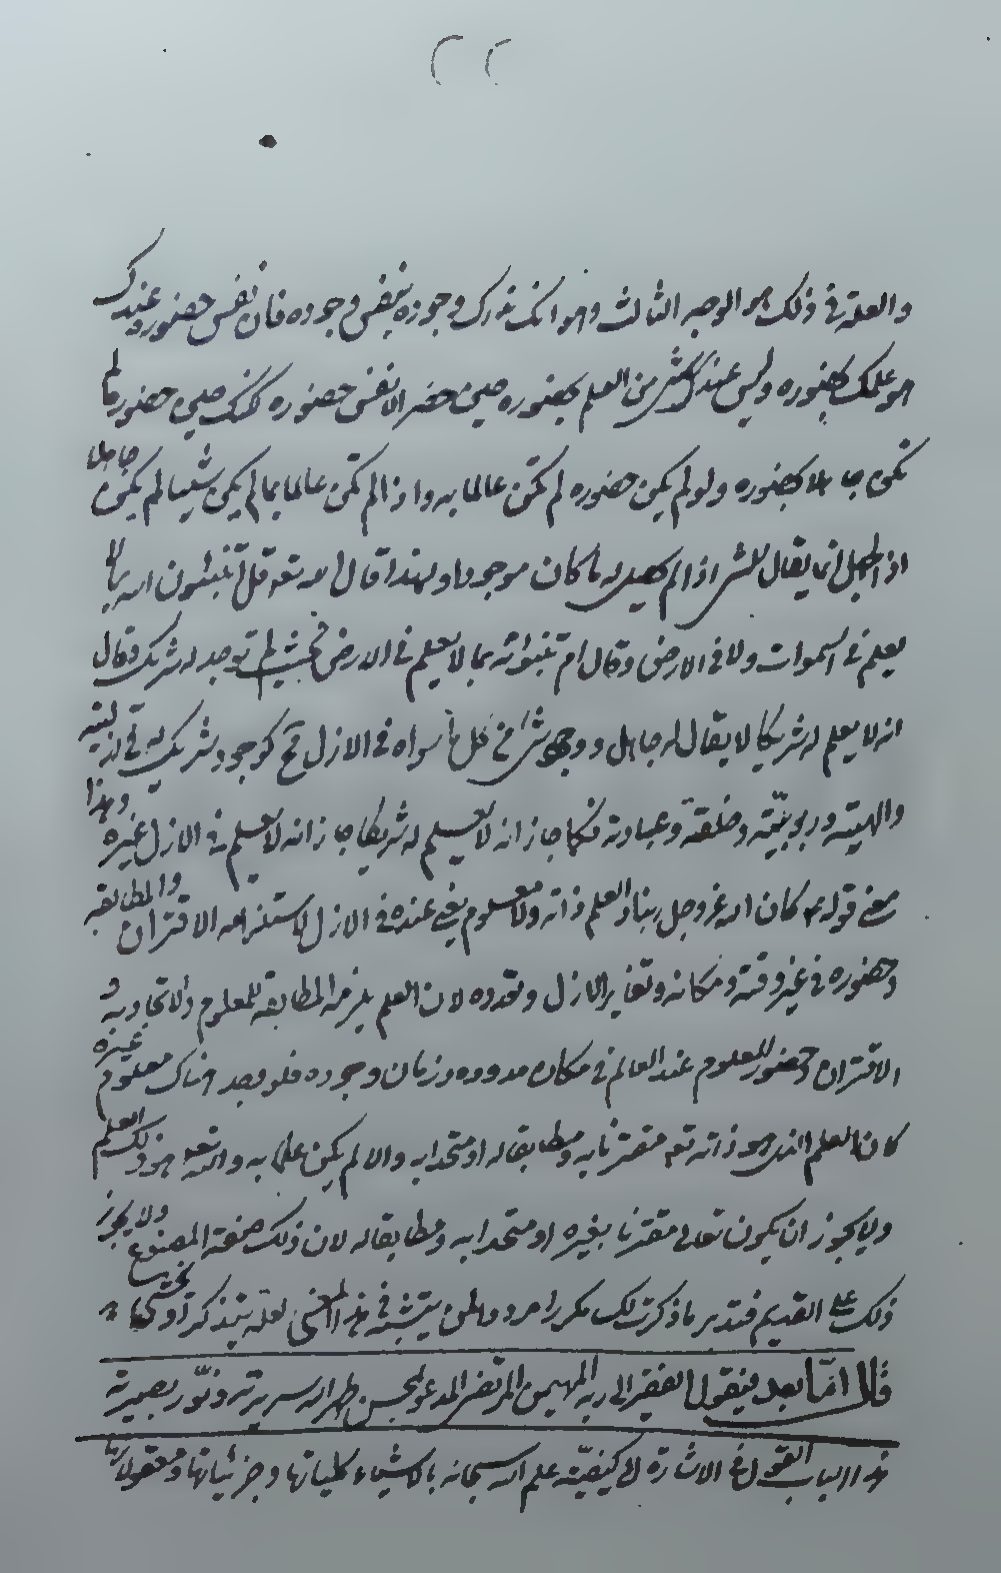 والعلة في ذلك هو الوجه الثالث وهو انك تدرك وجوده بنفس وجوده فان نفس حضوره عندك
هو علمك بحضوره وليس عندك شئ من العلم بحضوره حين حضر الا نفس حضوره لكنك حين حضوره لم
تكن جاهلا بحضوره ولو لم يكن حضوره لم تكن عالما به واذا لم تكن عالما بما لم يكن شيئا لم يكن جاهلا
اذ الجهل انما يقال للشئ اذا لم يحصل له ما كان موجودا ولهذا قال الله تعه قل أتنبئون الله بما لا
يعلم في السموات ولا في الارض وقال ام تنبئونه بما لا يعلم في الارض فحيث لم توجد له شريك وقال
انه لا يعلم له شريكا لا يقال له جاهل ووجود شئ في كل ما سواه في الازل كوجود شريك له في ازليته
والهيته وربوبيته وخلقه وعبادته فكما جاز انه لا يعلم له شريكا جاز انه لا يعلم في الازل غيره وهذا
معنى قوله ع كان الله عز وجل ربنا والعلم ذاته ولا معلوم يعني عنده في الازل لاستلزامه الاقتران والمطابقه
وحضوره في غير وقته ومكانه وتغاير الازل وتعدده لان العلم يلزمه المطابقة للمعلوم والاتحاد به و
الاقتران وحضور المعلوم عند العالم في مكان حدوده وزمان وجوده فلو وجد هناك معلوم غيره
كان العلم الذي هو ذاته تعه مقترنا به ومطابقا له او متحدا به والا لم يكن علما به والله تعه هو ذلك العلم
ولا يجوز ان يكون تعالى مقترنا بغيره او متحدا به ومطابقا له لان ذلك صفة المصنوع ولا يجوز
ذلك على القديم فتدبر ما ذكرت لك مكررا مرددا لمن يتثبت في هذا المعنى لعله يتذكر او يخشى
قال اما بعد فيقول الفقير الى ربه المهيمن المرتضى المدعو بمحسن طهر الله سريرته ونور بصيرته
هذا لباب القول في الاشارة الى كيفية علم الله سبحانه بالاشياء كلياتها وجزئياتها ومعقولاتها